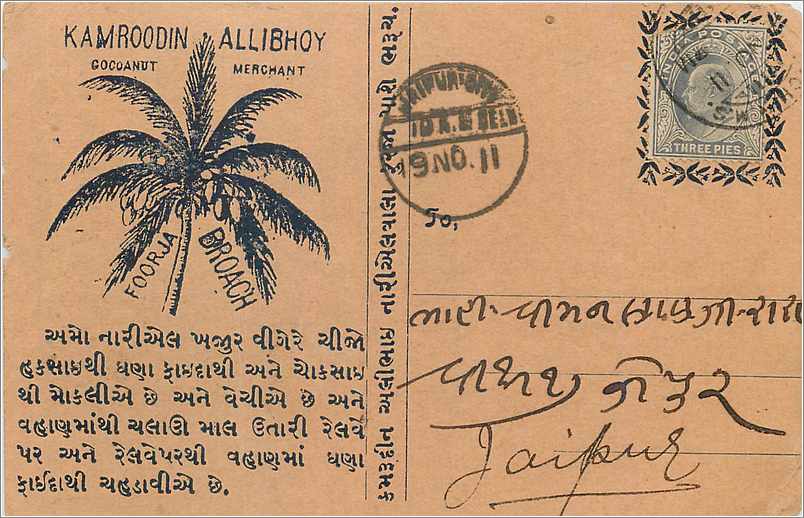 KAMROODIN ALLIBHOY
COCOANUT MERCHANT
FOORJA BROACH
અમો નારીએલ ખજીુર વીગેરે ચીજો
હકસાઇથી ઘણા ફાઇદાથી અને ચોકસાઇ
થી મોકલીએ છે અને વેચીએ છે અને
વહાણમાંથી ચલાઊ માલ ઉતારી રેલવે
પર અને રેલવેપરથી વહાણમાં ઘણા
ફાઈદાથી ચહડાવીએ છે.
કમરૂદ્દીન અલીભાઇ નારીએલવાલા ફુરજા પાસે ભરૂચ.
JAIPUR-CITY
10 A.M DELY
9 NO. 11
INDIA POSTAGE
THREE PIES
ઠે૦,
Jaipur